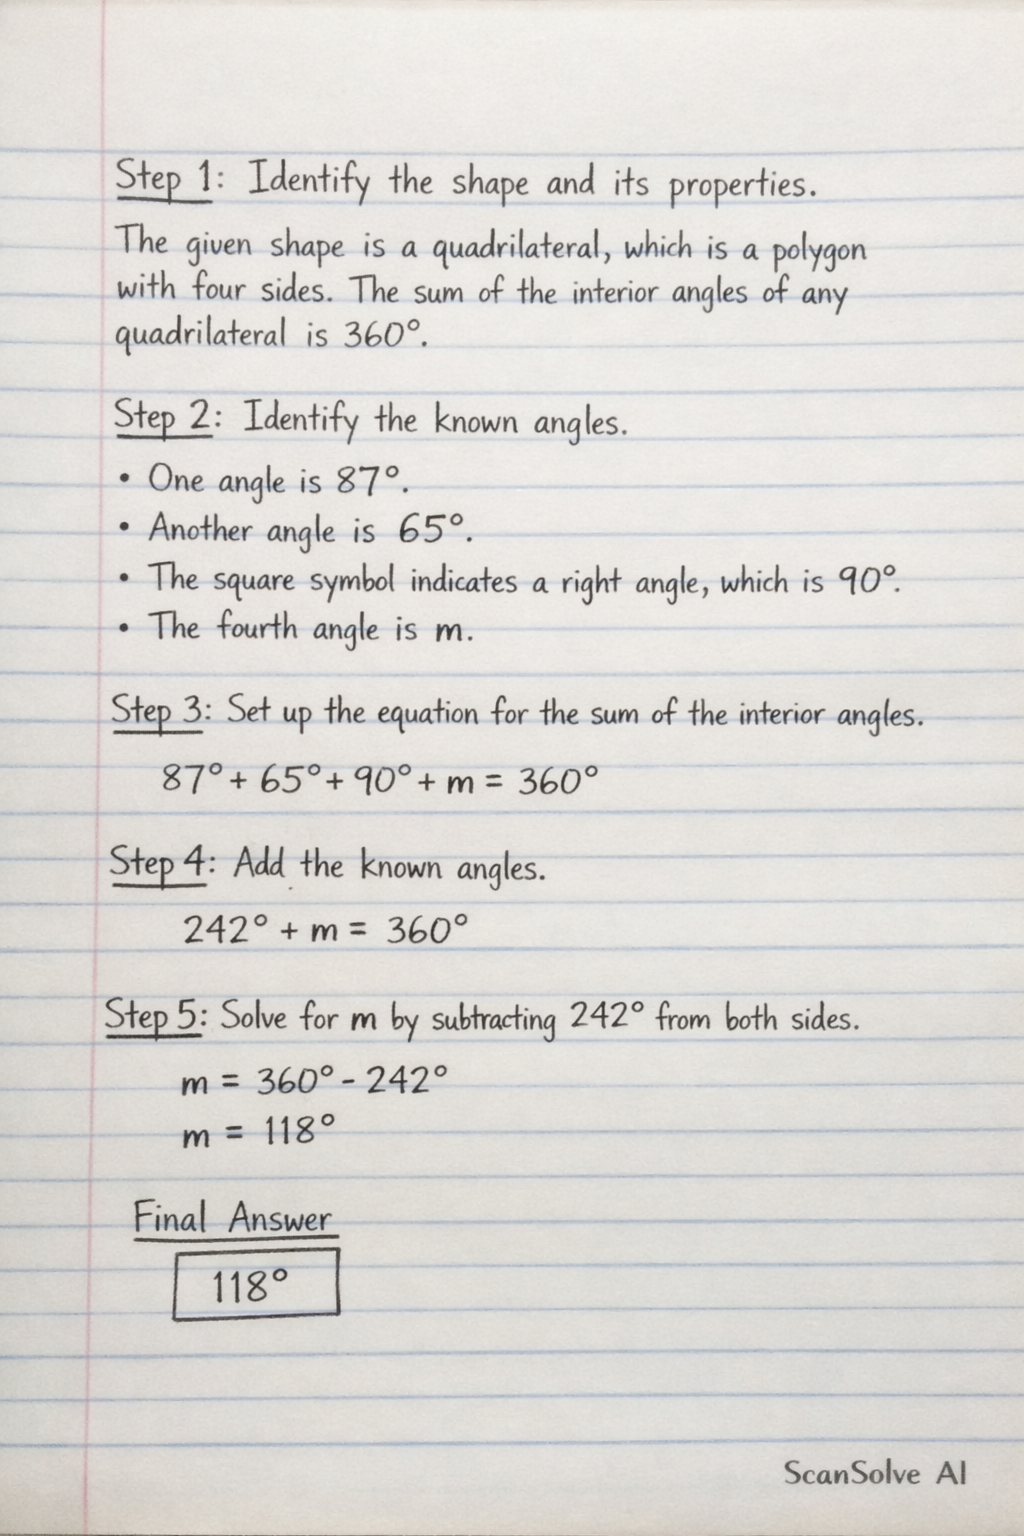 Step 1: Identify the shape and its properties.
The given shape is a quadrilateral, which is a polygon
with four sides. The sum of the interior angles of any
quadrilateral is 360°.
Step 2: Identify the known angles.
• One angle is 87°.
• Another angle is 65°.
• The square symbol indicates a right angle, which is 90°.
• The fourth angle is m.
Step 3: Set up the equation for the sum of the interior angles.
87° + 65° + 90° + m = 360°
Step 4: Add the known angles.
242° + m = 360°
Step 5: Solve for m by subtracting 242° from both sides.
m = 360° - 242°
m = 118°
Final Answer
118°
ScanSolve AI